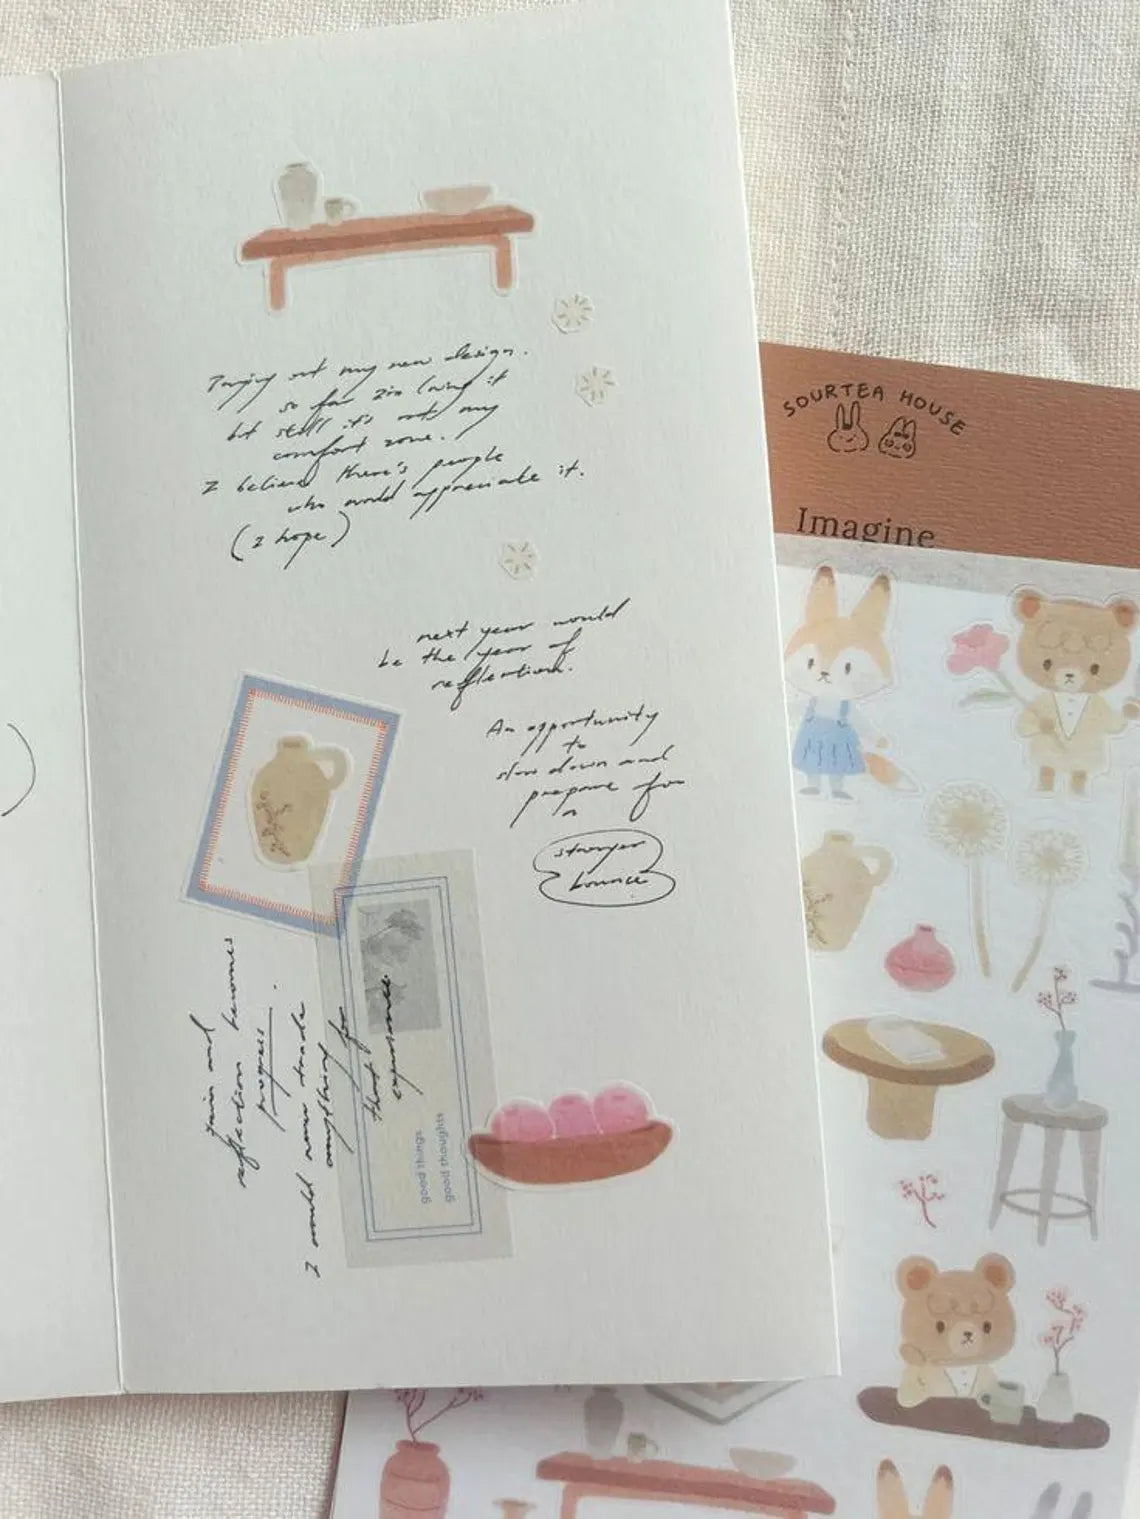 Trying out my new design.
so far I'm loving it
but still it's out my
comfort zone.
I believe there's people
who would appreciate it.
(I hope)
next year would
be the year of
reflection.
An opportunity
to
slow down and
prepare for
a
stronger
bounce
pain and
reflection becomes
progress.
I would never trade
anything for
that
experience
good things
good thoughts
SOURTEA HOUSE
Imagine